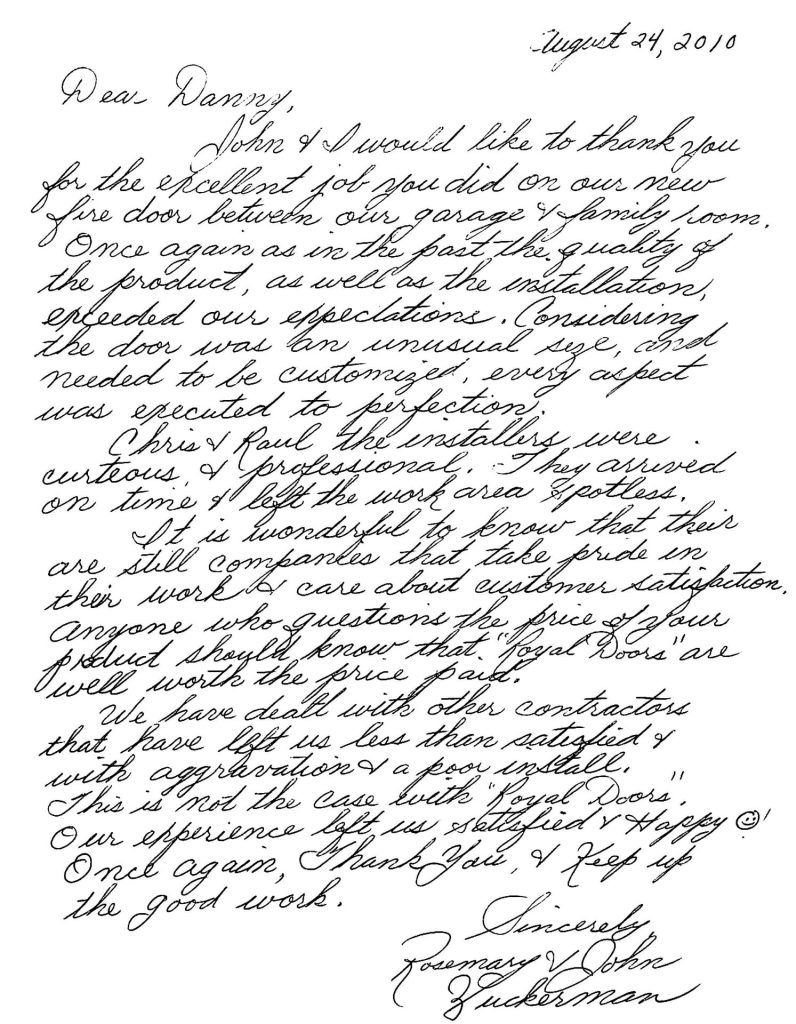 August 24, 2010
Dear Danny,
John & I would like to thank you
for the excellent job you did on our new
fire door between our garage & family room.
Once again as in the past the quality of
the product, as well as the installation,
exceeded our expectations. Considering
the door was an unusual size, and
needed to be customized, every aspect
was executed to perfection.
Chris & Raul the installers were
curteous, & professional. They arrived
on time & left the work area spotless.
It is wonderful to know that their
are still companies that take pride in
their work & care about customer satisfaction.
Anyone who questions the price of your
product should know that "Royal Doors" are
well worth the price paid.
We have dealt with other contractors
that have left us less than satisfied &
with aggravation & a poor install.
This is not the case with "Royal Doors".
Our experience left us satisfied & Happy ☺!
Once again, Thank You, & Keep up
the good work.
Sincerely,
Rosemary & John
Zuckerman